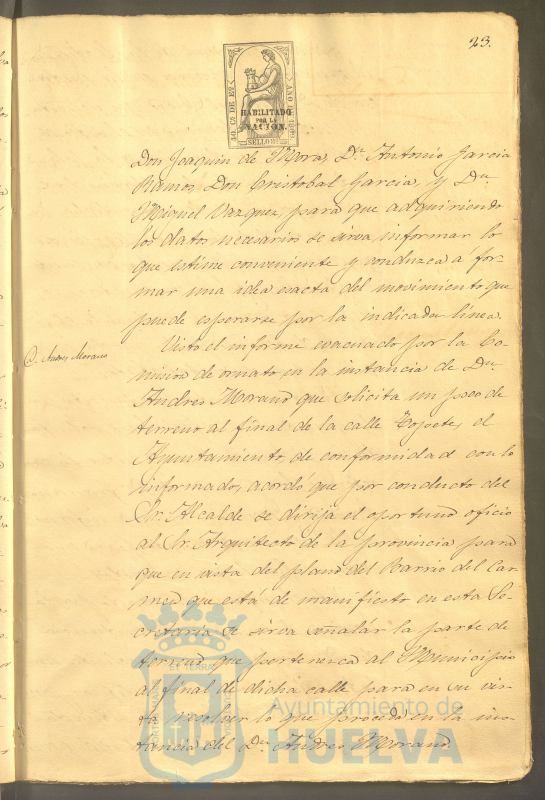 23.
50 Cs DE Eo
AÑO DE 1869
HABILITADO
POR LA
NACION.
SELLO
Don Joaquin de Mora, Dn. Antonio Garcia
Ramos, Don Cristobal Garcia, y Dn.
Miguel Vazquez, para que adquiriendo
los datos necesarios se sirva informar lo
que estime conveniente y conduzca á for-
mar una idea esacta del movimiento que
puede esperarse por la indicada linea.
D. Andres Morano
Visto el informe evacuado por la Co-
mision de ornato en la instancia de Dn.
Andres Morano que solicita un poco de
terreno al final de la calle Topete, el
Ayuntamiento de conformidad con lo
informado, acordó que por conducto del
Sr. Alcalde se dirija el oportuno oficio
al Sr. Arquitecto de la provincia para
que en vista del plano del Barrio del Car-
men que está de manifiesto en esta Se-
cretaria se sirva señalár la parte de
terreno que pertenezca al Municipio
al final de dicha calle para en su vir-
tud resolver lo que proceda en la ins-
tancia del Dn. Andres Morano.
Ayuntamiento de
HUELVA